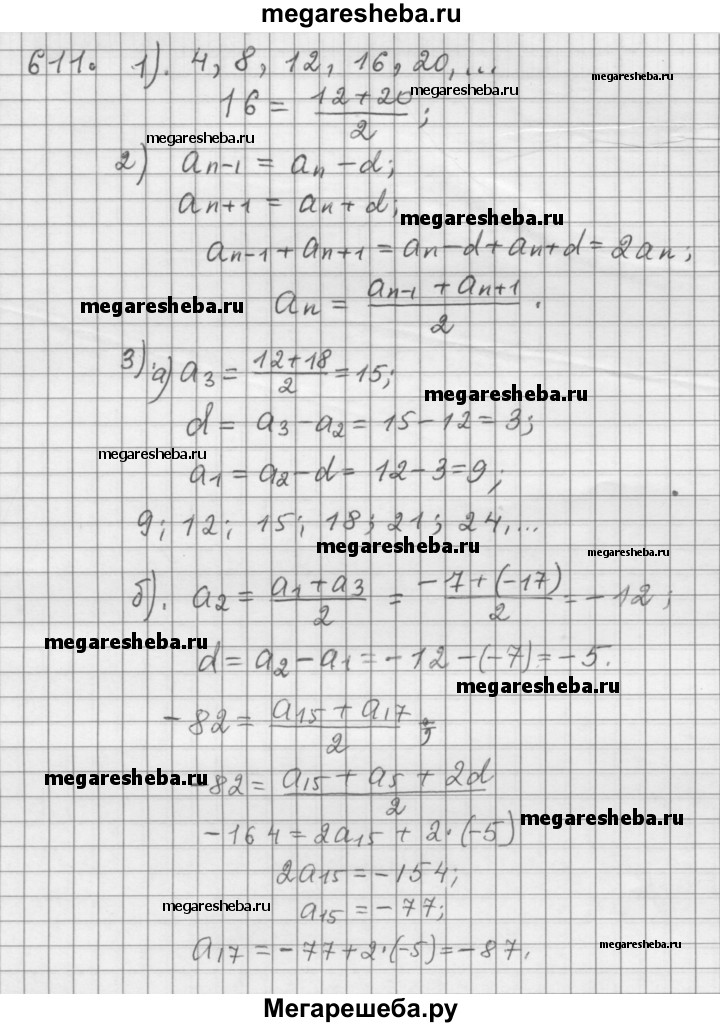 megaresheba.ru
611. 1). 4, 8, 12, 16, 20, ...
megaresheba.ru
16 = (12+20)/2; megaresheba.ru
megaresheba.ru
2) aₙ₋₁ = aₙ − d;
aₙ₊₁ = aₙ + d;
megaresheba.ru
aₙ₋₁ + aₙ₊₁ = aₙ − d + aₙ + d = 2aₙ;
megaresheba.ru aₙ = (aₙ₋₁ + aₙ₊₁)/2.
3) а) a₃ = (12+18)/2 = 15;
megaresheba.ru
d = a₃ − a₂ = 15 − 12 = 3;
megaresheba.ru
a₁ = a₂ − d = 12 − 3 = 9;
9; 12; 15; 18; 21; 24, ...
megaresheba.ru megaresheba.ru
б). a₂ = (a₁ + a₃)/2 = (−7 + (−17))/2 = −12;
megaresheba.ru d = a₂ − a₁ = −12 − (−7) = −5.
megaresheba.ru
−82 = (a₁₅ + a₁₇)/2;
megaresheba.ru −82 = (a₁₅ + a₅ + 2d)/2
−164 = 2a₁₅ + 2·(−5) megaresheba.ru
2a₁₅ = −154;
megaresheba.ru a₁₅ = −77;
a₁₇ = −77 + 2·(−5) = −87. megaresheba.ru
Мегарешеба.ру